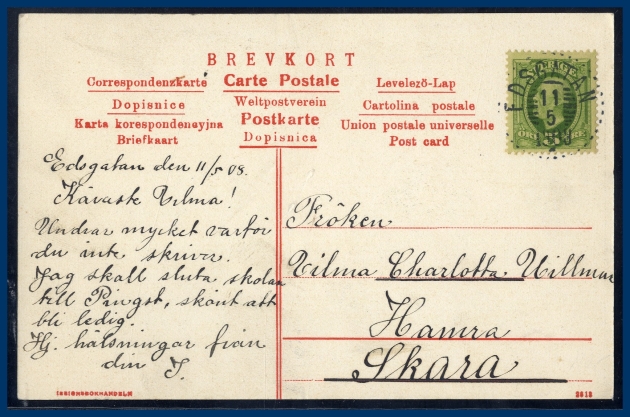 BREVKORT
Correspondenzkarte Carte Postale Levelező-Lap
Dopisnice Weltpostverein Cartolina postale
Karta korespondencyjna Postkarte Union postale universelle
Briefkaart Dopisnica Post card
EDSGATAN
11
5
SVERIGE
Edsgatan den 11/5 08.
Käraste Vilma!
Undrar mycket varför
du inte skriver.
Jag skall sluta skolan
till Pingst, skönt att
bli ledig.
Hj. hälsningar från
din I.
Fröken
Vilma Charlotta Willman
Hamra
Skara
3618